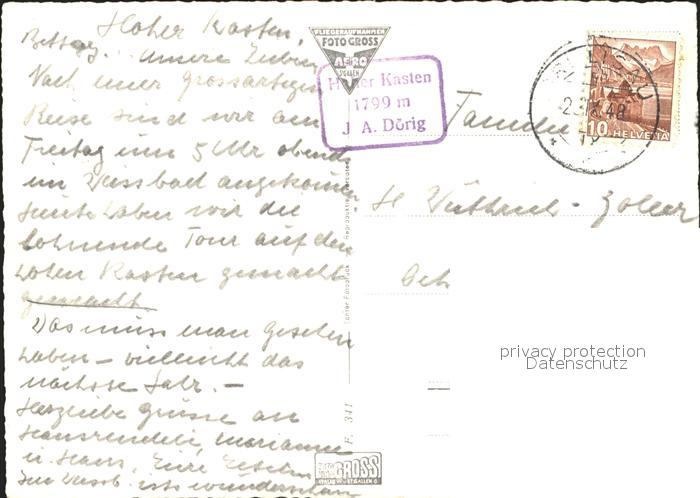 Hoher Kasten,
Bettag. Unsere Lieben,
Nach einer grossartigen
Reise sind wir am
Freitag um 5 Uhr abends
im Weissbad angekommen
heute haben wir die
lohnende Tour auf den
hohen Kasten gemacht
gemacht.
Das muss man gesehen
haben – vielleicht das
nächste Jahr. –
Herzliche Grüsse an
Hansruedeli, Marianne
u. Hans, Eure Eltern
Im Weissb. ists wunderbar
FLIEGERAUFNAHMEN
FOTO GROSS
AERO
ST. GALLEN
Hoher Kasten
1799 m
J. A. Dörig
10 HELVETIA
Familie
H Wüthrich - Zoller
privacy protection
Datenschutz
F. 341
GROSS